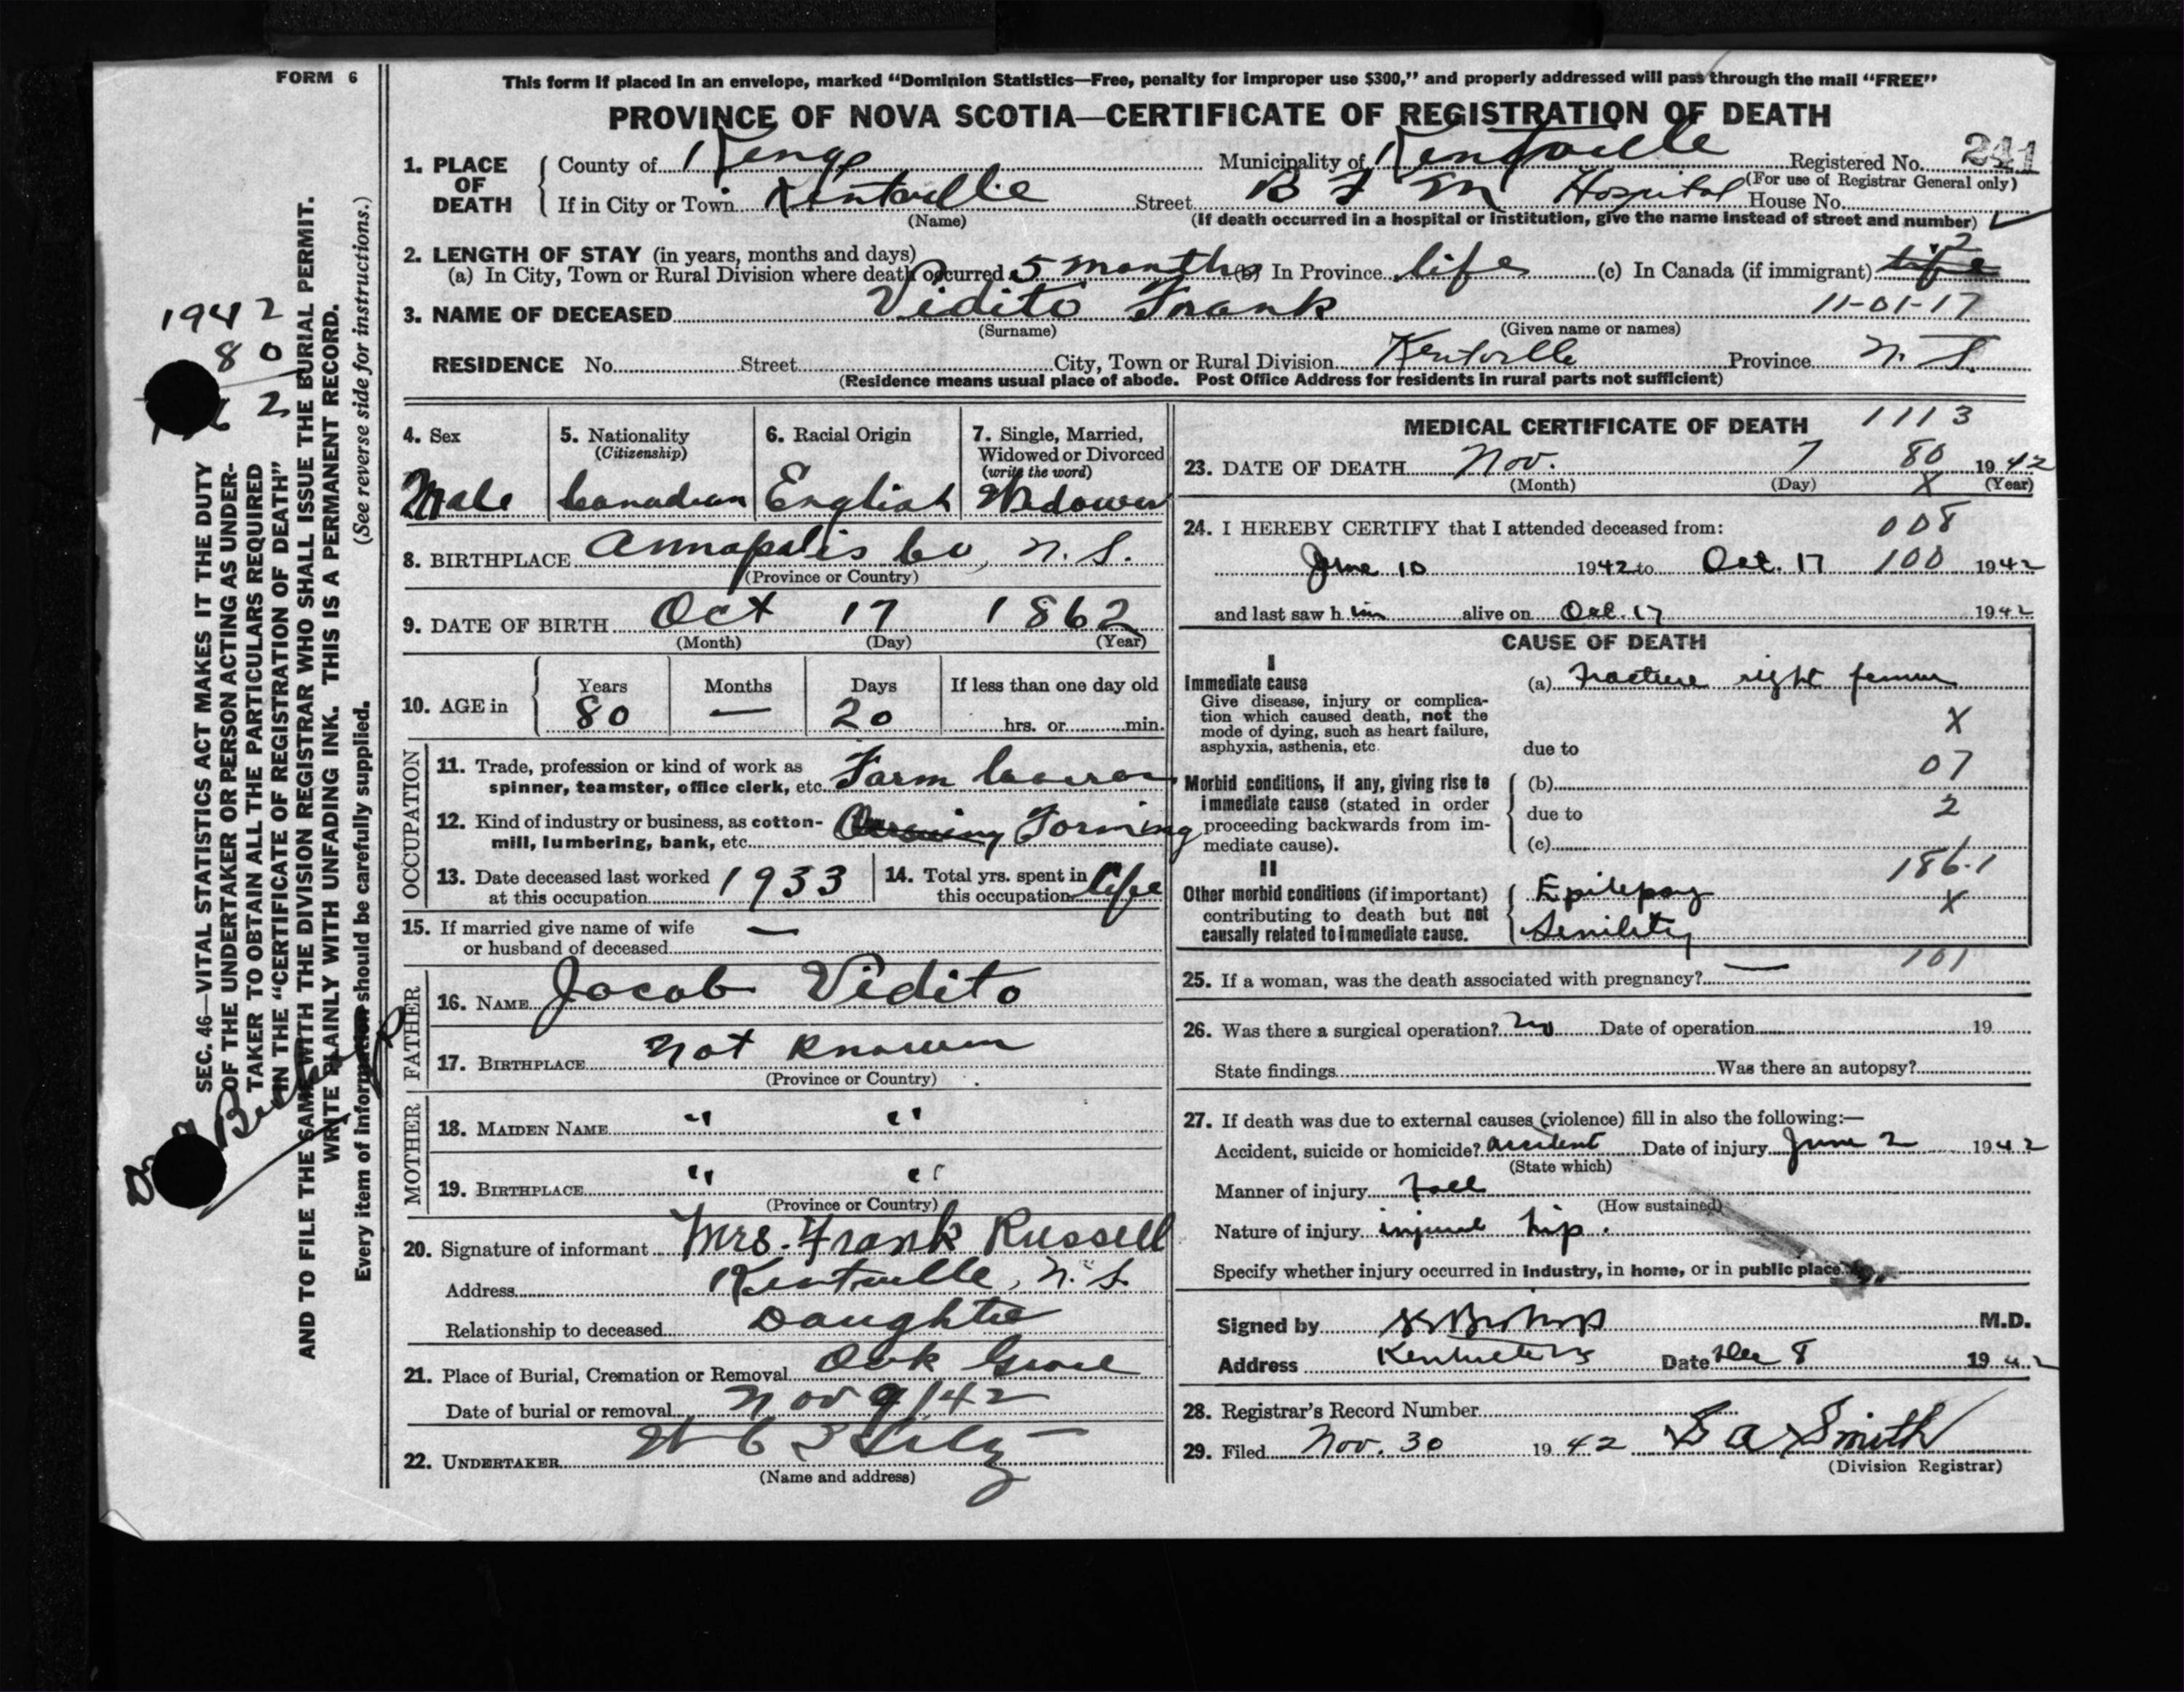 FORM 6
This form if placed in an envelope, marked "Dominion Statistics—Free, penalty for improper use $300," and properly addressed will pass through the mail "FREE"
PROVINCE OF NOVA SCOTIA—CERTIFICATE OF REGISTRATION OF DEATH
1. PLACE OF DEATH
County of Kings Municipality of Kentville Registered No. 241
(For use of Registrar General only)
If in City or Town Kentville Street B F M Hospital House No.
(Name) (If death occurred in a hospital or institution, give the name instead of street and number)
2. LENGTH OF STAY (in years, months and days) 2
(a) In City, Town or Rural Division where death occurred 5 months (b) In Province life (c) In Canada (if immigrant) life
3. NAME OF DECEASED Vidito Frank 11-01-17
(Surname) (Given name or names)
RESIDENCE No. Street City, Town or Rural Division Kentville Province N. S.
(Residence means usual place of abode. Post Office Address for residents in rural parts not sufficient)
4. Sex
Male
5. Nationality
(Citizenship)
Canadian
6. Racial Origin
English
7. Single, Married,
Widowed or Divorced
(write the word)
Widower
8. BIRTHPLACE Annapolis Co, N. S.
(Province or Country)
9. DATE OF BIRTH Oct 17 1862
(Month) (Day) (Year)
10. AGE in
Years Months Days If less than one day old
80 — 20 hrs. or min.
OCCUPATION
11. Trade, profession or kind of work as
spinner, teamster, office clerk, etc. Farm
12. Kind of industry or business, as cotton-
mill, lumbering, bank, etc. Farming
13. Date deceased last worked
at this occupation 1933
14. Total yrs. spent in
this occupation Life
15. If married give name of wife
or husband of deceased —
FATHER
16. NAME Jacob Vidito
17. BIRTHPLACE Not Known
(Province or Country)
MOTHER
18. MAIDEN NAME " "
19. BIRTHPLACE " "
(Province or Country)
20. Signature of informant Mrs. Frank Russell
Address Kentville, N. S.
Relationship to deceased Daughter
21. Place of Burial, Cremation or Removal Oak Grove
Date of burial or removal Nov 9/42
22. UNDERTAKER
(Name and address)
MEDICAL CERTIFICATE OF DEATH 1113
23. DATE OF DEATH Nov. 7 80 1942
(Month) (Day) X (Year)
24. I HEREBY CERTIFY that I attended deceased from: 008
June 10 1942 to Oct. 17 100 1942
and last saw h im alive on Oct. 17 1942
CAUSE OF DEATH
I
Immediate cause
Give disease, injury or complica-
tion which caused death, not the
mode of dying, such as heart failure,
asphyxia, asthenia, etc.
(a) Fracture right femur
X
due to
07
Morbid conditions, if any, giving rise to
immediate cause (stated in order
proceeding backwards from im-
mediate cause).
(b)
due to 2
(c)
186.1
II
Other morbid conditions (if important)
contributing to death but not
causally related to immediate cause.
Epilepsy
X
Senility
101
25. If a woman, was the death associated with pregnancy? —
26. Was there a surgical operation? no Date of operation 19
State findings Was there an autopsy?
27. If death was due to external causes (violence) fill in also the following:—
Accident, suicide or homicide? accident Date of injury June 2 1942
(State which)
Manner of injury Fall
(How sustained)
Nature of injury injured hip.
Specify whether injury occurred in industry, in home, or in public place
Signed by M.D.
Address Date Dec 8 1942
28. Registrar's Record Number
29. Filed Nov. 30 1942 Smith
(Division Registrar)
1942
80
62
SEC. 46—VITAL STATISTICS ACT MAKES IT THE DUTY
OF THE UNDERTAKER OR PERSON ACTING AS UNDER-
TAKER TO OBTAIN ALL THE PARTICULARS REQUIRED
IN THE "CERTIFICATE OF REGISTRATION OF DEATH"
AND TO FILE THE SAME WITH THE DIVISION REGISTRAR WHO SHALL ISSUE THE BURIAL PERMIT.
WRITE PLAINLY WITH UNFADING INK. THIS IS A PERMANENT RECORD.
Every item of information should be carefully supplied. (See reverse side for instructions.)